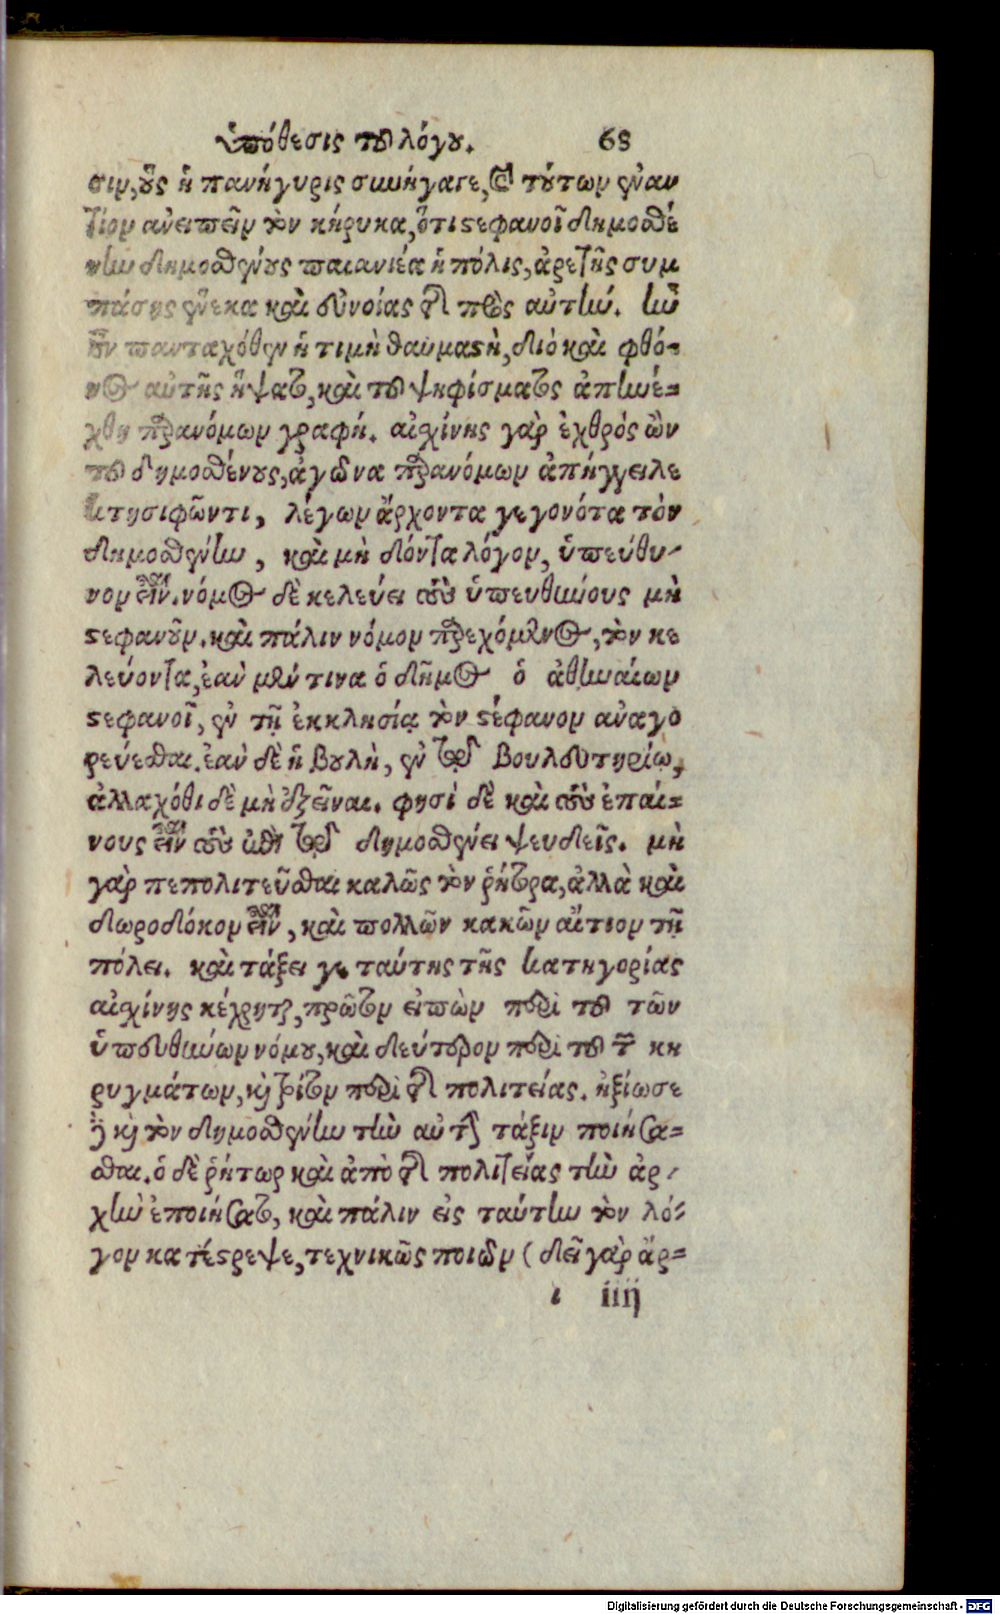 ὑπόθεσις τοῦ λόγου. 68
σιν, οὓς ἡ πανήγυρις συνήγαγε, καὶ τούτων ἐναν
τίον ἀνειπεῖν τὸν κήρυκα, ὅτι στεφανοῖ δημοσθέ
νην δημοσθένους παιανιέα ἡ πόλις, ἀρετῆς συμ
πάσης ἕνεκα καὶ εὐνοίας τῆς πρὸς αὐτήν. ἦν
οὖν πανταχόθεν ἡ τιμὴ θαυμαστὴ, διὸ καὶ φθό-
νος αὐτῆς ἥψατο, καὶ τοῦ ψηφίσματος ἀπηνέ-
χθη παρανόμων γραφή. αἰσχίνης γὰρ ἐχθρὸς ὢν
τοῦ δημοσθένους, ἀγῶνα παρανόμων ἀπήγγειλε
κτησιφῶντι, λέγων ἄρχοντα γεγονότα τὸν
δημοσθένην, καὶ μὴ δόντα λόγον, ὑπεύθυ-
νον εἶναι. νόμος δὲ κελεύει τοὺς ὑπευθύνους μὴ
στεφανοῦν. καὶ πάλιν νόμον παρεχόμενος, τὸν κε
λεύοντα, ἐὰν μέν τινα ὁ δῆμος ὁ ἀθηναίων
στεφανοῖ, ἐν τῇ ἐκκλησίᾳ τὸν στέφανον ἀναγο
ρεύεσθαι. ἐὰν δὲ ἡ βουλὴ, ἐν τῷ βουλευτηρίῳ,
ἀλλαχόθι δὲ μὴ ἐξεῖναι. φησὶ δὲ καὶ τοὺς ἐπαί-
νους εἶναι τοὺς ἐπὶ τῷ δημοσθένει ψευδεῖς. μὴ
γὰρ πεπολιτεῦσθαι καλῶς τὸν ῥήτορα, ἀλλὰ καὶ
δωροδόκον εἶναι, καὶ πολλῶν κακῶν αἴτιον τῇ
πόλει. καὶ τάξει γε ταύτης τῆς κατηγορίας
αἰσχίνης κέχρηται, πρῶτον εἰπὼν περὶ τοῦ τῶν
ὑπευθύνων νόμου, καὶ δεύτερον περὶ τοῦ τῶν κη
ρυγμάτων, καὶ τρίτον περὶ τῆς πολιτείας. ἠξίωσε
δὲ καὶ τὸν δημοσθένην τὴν αὐτὴν τάξιν ποιήσα-
σθαι. ὁ δὲ ῥήτωρ καὶ ἀπὸ τῆς πολιτείας τὴν ἀρ-
χὴν ἐποιήσατο, καὶ πάλιν εἰς ταύτην τὸν λό-
γον κατέστρεψε, τεχνικῶς ποιῶν (δεῖ γὰρ ἄρ-
ι iiij
Digitalisierung gefördert durch die Deutsche Forschungsgemeinschaft - DFG